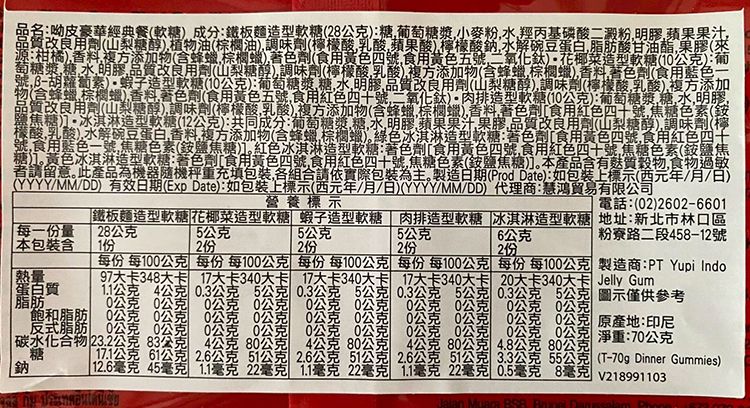 品名:呦皮豪華經典餐(軟糖) 成分:鐵板麵造型軟糖(28公克):糖,葡萄糖漿,小麥粉,水,羥丙基磷酸二澱粉,明膠,蘋果果汁,
品質改良用劑(山梨糖醇),植物油(棕櫚油),調味劑(檸檬酸,乳酸,蘋果酸),檸檬酸鈉,水解碗豆蛋白,脂肪酸甘油酯,果膠(來
源:柑橘),香料,複方添加物(含蜂蠟,棕櫚蠟),著色劑(食用黃色四號,食用黃色五號,二氧化鈦)・花椰菜造型軟糖(10公克):葡
萄糖漿,糖,水,明膠,品質改良用劑(山梨糖醇),調味劑(檸檬酸,乳酸),複方添加物(含蜂蠟,棕櫚蠟),香料,著色劑(食用藍色一
號,β-胡蘿蔔素)・蝦子造型軟糖(10公克):葡萄糖漿,糖,水,明膠,品質改良用劑(山梨糖醇),調味劑(檸檬酸,乳酸),複方添加
物(含蜂蠟,棕櫚蠟),香料,著色劑(食用黃色五號,食用紅色四十號,二氧化鈦)・肉排造型軟糖(10公克):葡萄糖漿,糖,水,明膠,
品質改良用劑(山梨糖醇),調味劑(檸檬酸,乳酸),複方添加物(含蜂蠟,棕櫚蠟),香料,著色劑[食用紅色四十號,焦糖色素(銨
鹽焦糖)]・冰淇淋造型軟糖(12公克):共同成分:葡萄糖漿,糖,水,明膠,蘋果汁,果膠,品質改良用劑(山梨糖醇),調味劑(檸
檬酸,乳酸),水解碗豆蛋白,香料,複方添加物(含蜂蠟,棕櫚蠟)。綠色冰淇淋造型軟糖:著色劑[食用黃色四號,食用紅色四十
號,食用藍色一號,焦糖色素(銨鹽焦糖)]。紅色冰淇淋造型軟糖:著色劑[食用黃色四號,食用紅色四十號,焦糖色素(銨鹽焦
糖)]。黃色冰淇淋造型軟糖:著色劑[食用黃色四號,食用紅色四十號,焦糖色素(銨鹽焦糖)]。本產品含有麩質穀物,食物過敏
者請留意。此產品為機器隨機秤重充填包裝,各組合請依實際包裝為主。製造日期(Prod Date):如包裝上標示(西元年/月/日)
(YYYY/MM/DD) 有效日期(Exp Date):如包裝上標示(西元年/月/日)(YYYY/MM/DD) 代理商:慧鴻貿易有限公司
營養標示 電話:(02)2602-6601
鐵板麵造型軟糖 花椰菜造型軟糖 蝦子造型軟糖 肉排造型軟糖 冰淇淋造型軟糖 地址:新北市林口區
每一份量 28公克 5公克 5公克 5公克 6公克 粉寮路二段458-12號
本包裝含 1份 2份 2份 2份 2份
每份 每100公克 每份 每100公克 每份 每100公克 每份 每100公克 每份 每100公克 製造商:PT Yupi Indo
熱量 97大卡 348大卡 17大卡 340大卡 17大卡 340大卡 17大卡 340大卡 20大卡 340大卡 Jelly Gum
蛋白質 1.1公克 4公克 0.3公克 5公克 0.3公克 5公克 0.3公克 5公克 0.3公克 5公克 圖示僅供參考
脂肪 0公克 0公克 0公克 0公克 0公克 0公克 0公克 0公克 0公克 0公克
飽和脂肪 0公克 0公克 0公克 0公克 0公克 0公克 0公克 0公克 0公克 0公克 原產地:印尼
反式脂肪 0公克 0公克 0公克 0公克 0公克 0公克 0公克 0公克 0公克 0公克
碳水化合物 23.2公克 83公克 4公克 80公克 4公克 80公克 4公克 80公克 4.8公克 80公克 淨重:70公克
糖 17.1公克 61公克 2.6公克 51公克 2.6公克 51公克 2.6公克 51公克 3.3公克 55公克 (T-70g Dinner Gummies)
鈉 12.6毫克 45毫克 1.1毫克 22毫克 1.1毫克 22毫克 1.1毫克 22毫克 0.5毫克 8毫克 V218991103